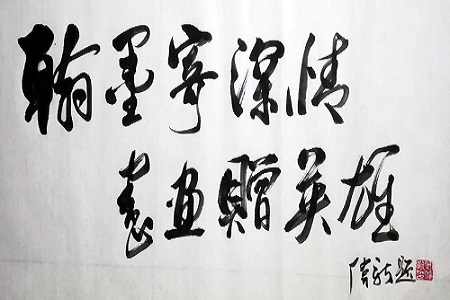 翰墨寄深情
書画贈英雄